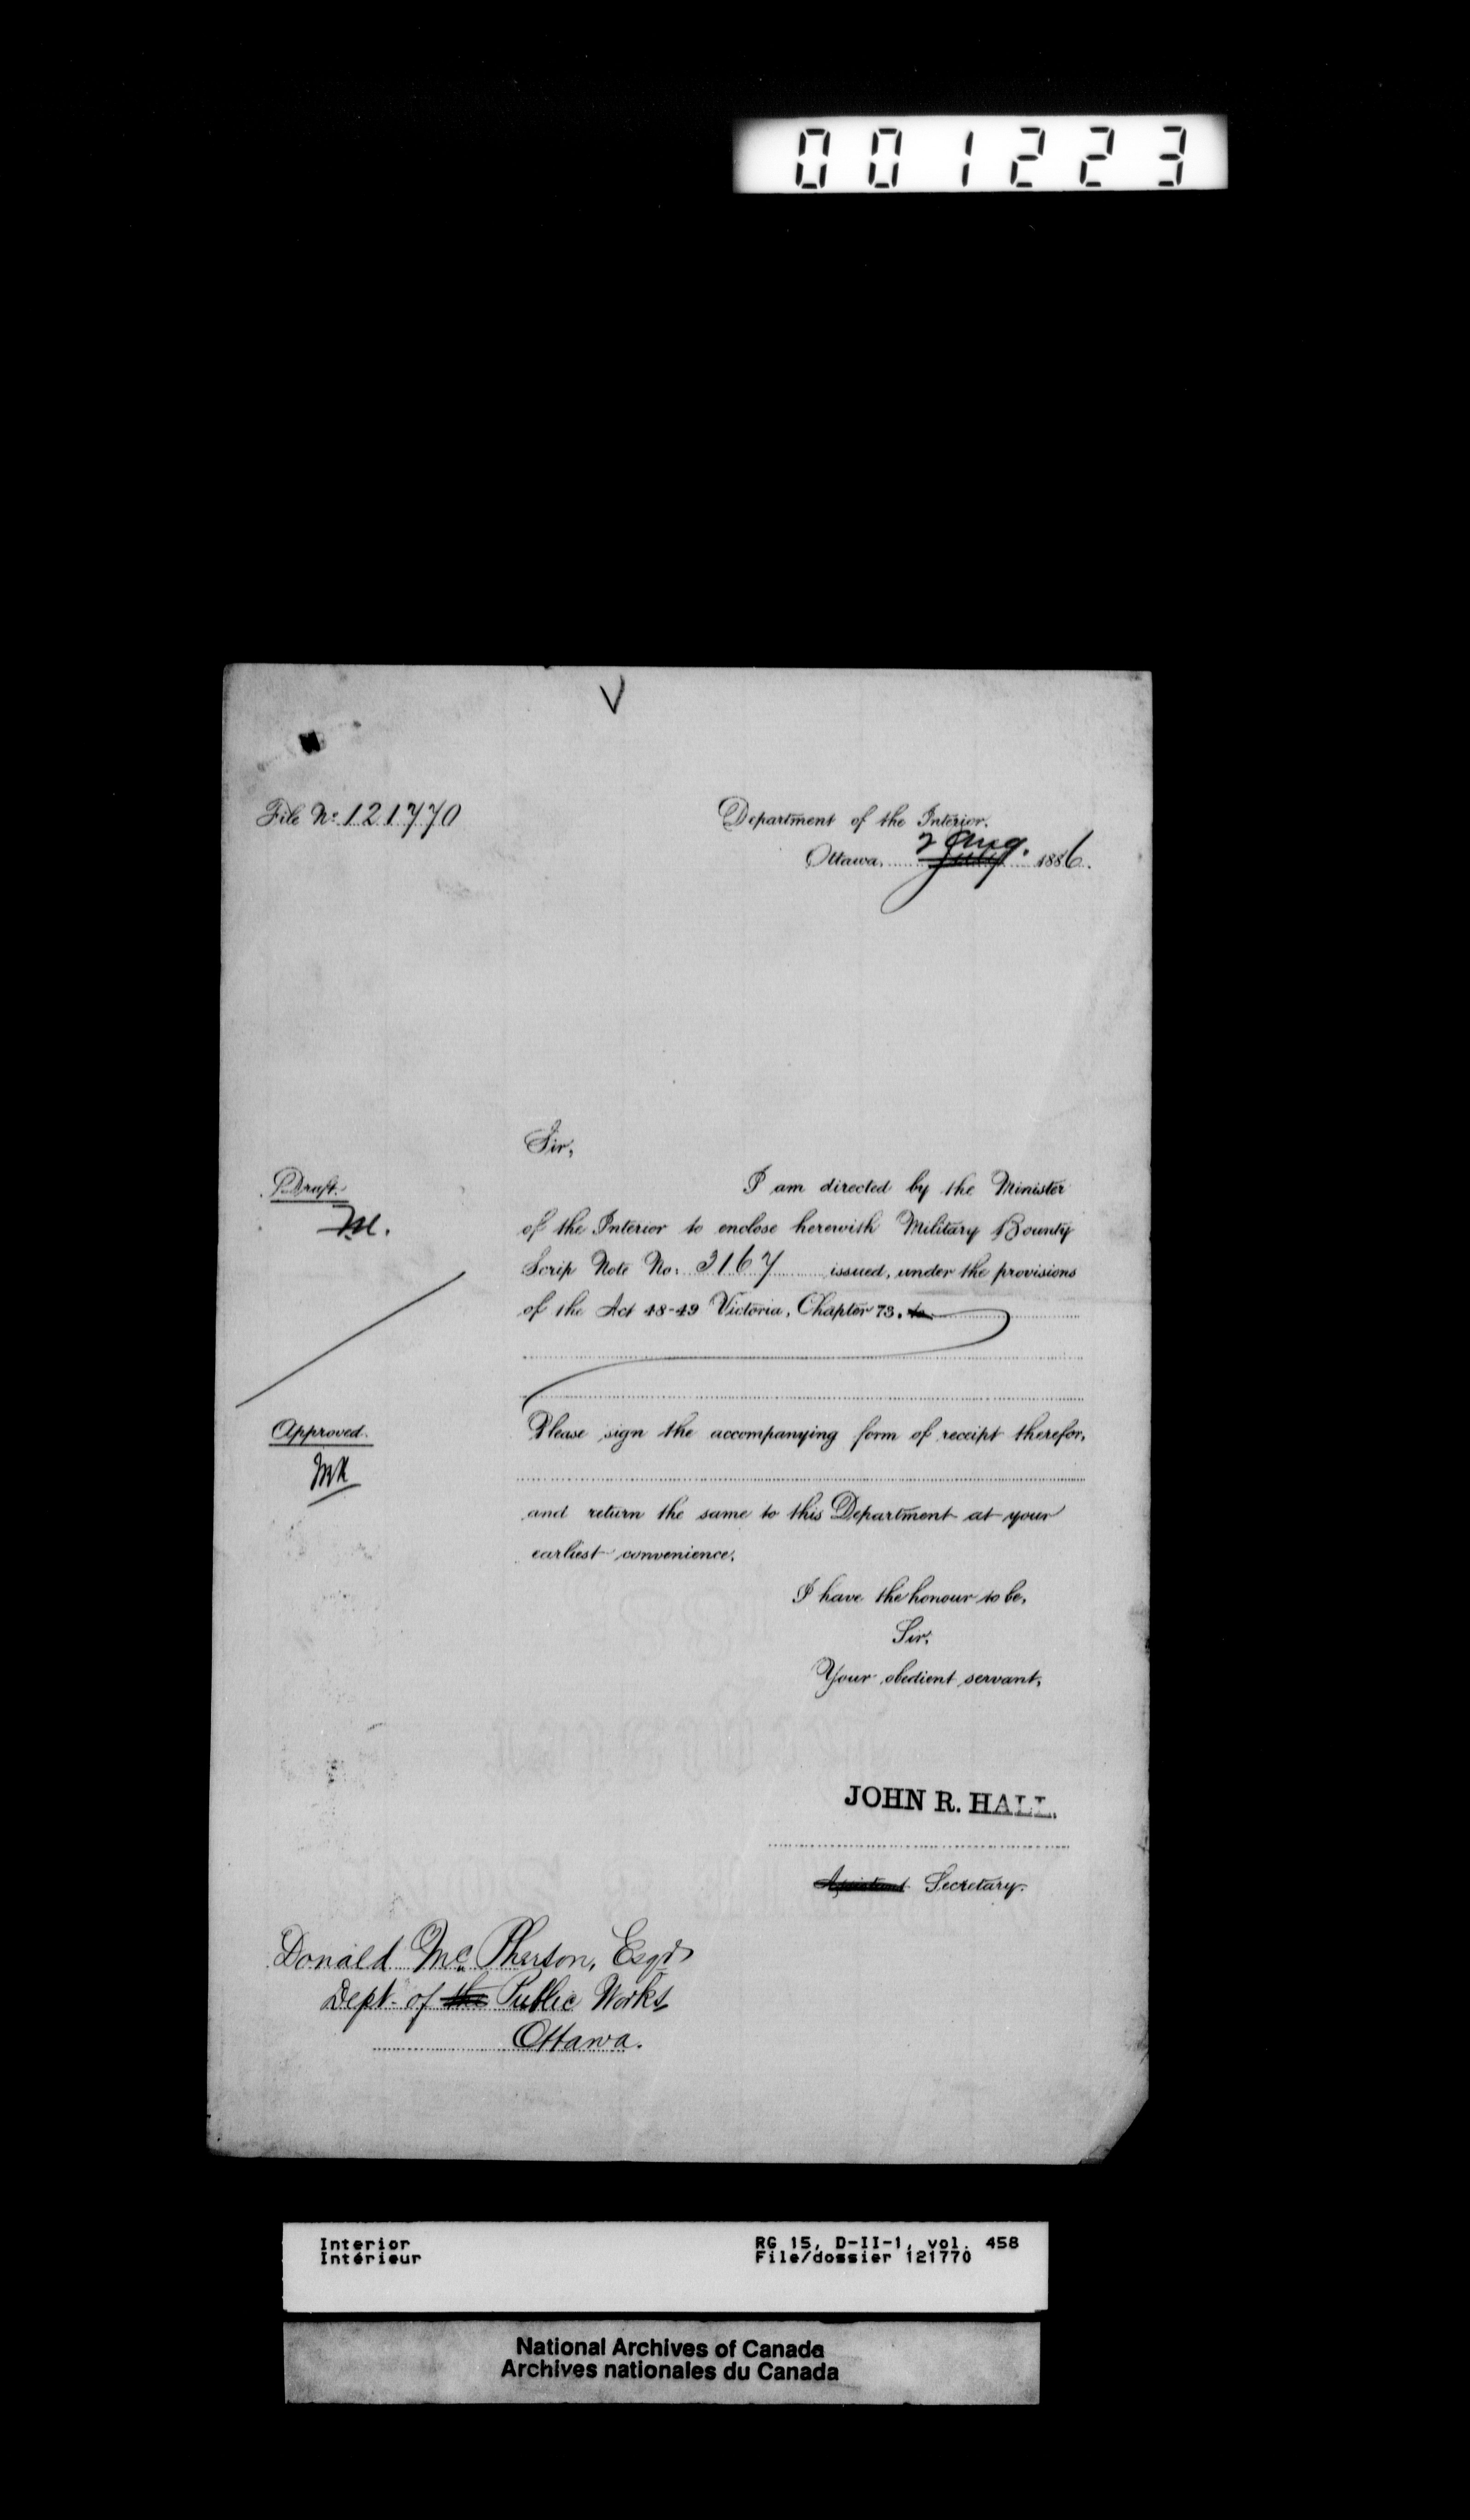 001223
V
File No. 121770
Department of the Interior.
Ottawa, 2 Aug. July 1886.
Sir,
Draft.
M.
I am directed by the Minister
of the Interior to enclose herewith Military Bounty
Scrip Note No. 3167 issued, under the provisions
of the Act 48-49 Victoria, Chapter 73. to
Approved.
Please sign the accompanying form of receipt therefor,
and return the same to this Department at your
earliest convenience.
I have the honour to be,
Sir,
Your obedient servant,
JOHN R. HALL.
Assistant Secretary.
Donald McPherson, Esqr
Dept. of the Public Works
Ottawa.
Interior
Intérieur
RG 15, D-II-1, vol. 458
File/dossier 121770
National Archives of Canada
Archives nationales du Canada